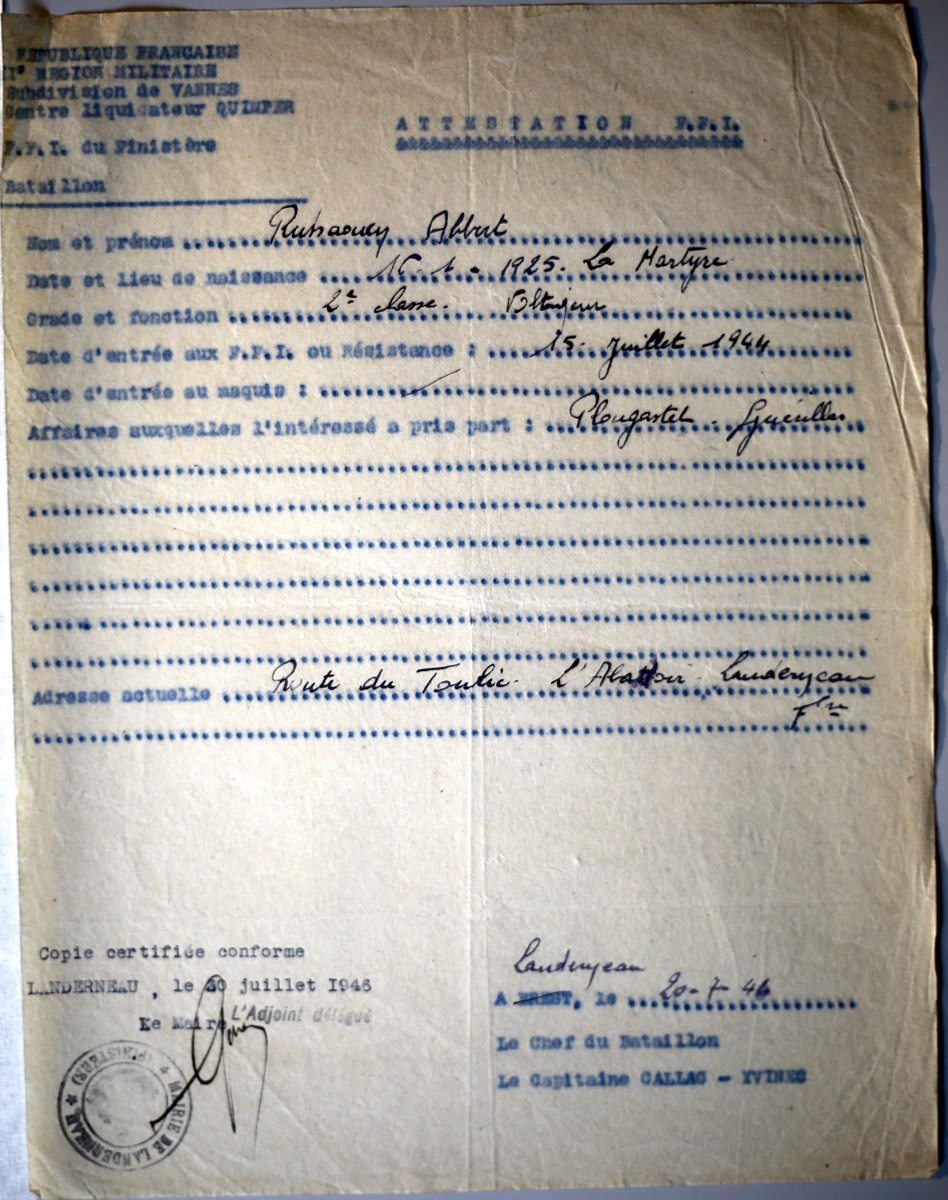 REPUBLIQUE FRANCAISE
II° REGION MILITAIRE
Subdivision de VANNES
Centre liquidateur QUIMPER
F.F.I. du Finistère
Bataillon
ATTESTATION F.F.I.
&&&&&&&&&&&&&&&&&&&&&&&&&&&&&&
Nom et prénom ...... Albert
Date et lieu de naissance ... 1925. La Martyre
Grade et fonction ...... 2e classe. Voltigeur
Date d'entrée aux F.F.I. ou Résistance : ... 15 juillet 1944
Date d'entrée au maquis : ......
Affaires auxquelles l'intéressé a pris part : ... Plougastel - Guérillas
Adresse actuelle ... Route du Toulic. L'Abattoir - Landerneau
Fre
Copie certifiée conforme
LANDERNEAU, le 20 juillet 1946
Le Maire L'Adjoint délégué
MAIRIE DE LANDERNEAU * (FINISTERE) *
Landerneau
A BREST, le ... 20-7-46
Le Chef du Bataillon
Le Capitaine GALLAC - YVINEC